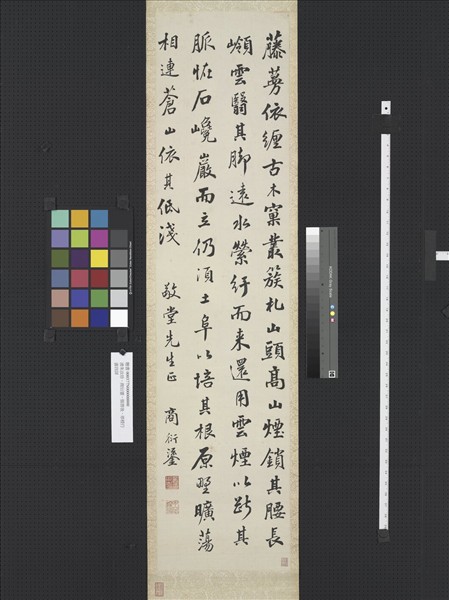 藤蘿依纏古木窠叢簇札山頭高山煙鎖其腰長
嶺雲翳其脚遠水縈紆而来還用雲煙以斷其
脈恠石巉巖而立仍須土阜以培其根原野曠蕩
相連蒼山依其低淺
敬堂先生正
商衍鎏